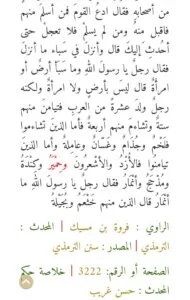 من أصحابِه فقال ادعُ القومَ فمن أسلم منهم
فاقبل منه ومن لم يسلمْ فلا تعجلْ حتى
أُحدثَ إليكَ قال وأُنزلَ في سباء ما أنزلَ
فقال رجلٌ يا رسولَ اللهِ وما سَبَأَ أرضٌ أو
امرأةٌ قال ليس بأرضٍ ولا امرأةٍ ولكنه
رجلٌ ولدَ عشرةً من العربِ فتيامنَ منهم
ستة وتشاءمَ منهم أربعة فأما الذين تشاءموا
فلَخمٌ وجذامٌ وغسّان وعاملة وأما الذين
تيامنوا فالأُزدُ والأشعرُون وحِمْيَرٌ وكِنْدَةُ
ومُذْحجٌ وأنْمَارُ فقال رجلٌ يا رسول اللهِ ما
أنْمَارُ قال الذين منهم خَثْعَمُ وبُجَيْلَةُ
الراوي : فروة بن مسيك | المحدث :
الترمذي | المصدر : سنن الترمذي
الصفحة أو الرقم: 3222 | خلاصة حكم
المحدث : حسن غريب